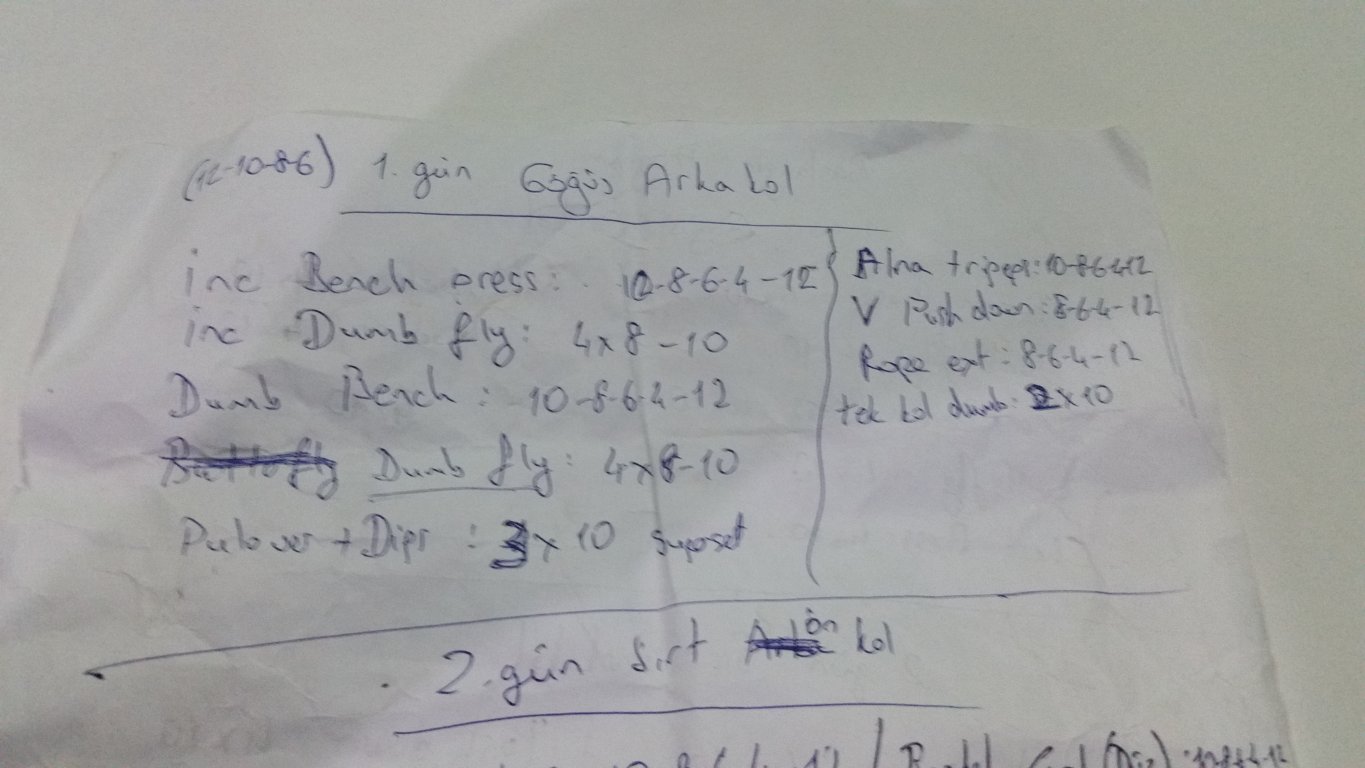 (12-10-8-6) 1. gün Göğüs Arka kol
inc Bench press: 10-8-6-4-12
inc Dumb fly: 4x8-10
Dumb Bench: 10-8-6-4-12
Dumb fly: 4x8-10
Pulover + Dips: 3x10 supset
Alna triceps: 10-8-6-4-12
V Push down: 8-6-4-12
Rope ext: 8-6-4-12
tek kol dumb: 2x10
2. gün Sırt ön kol